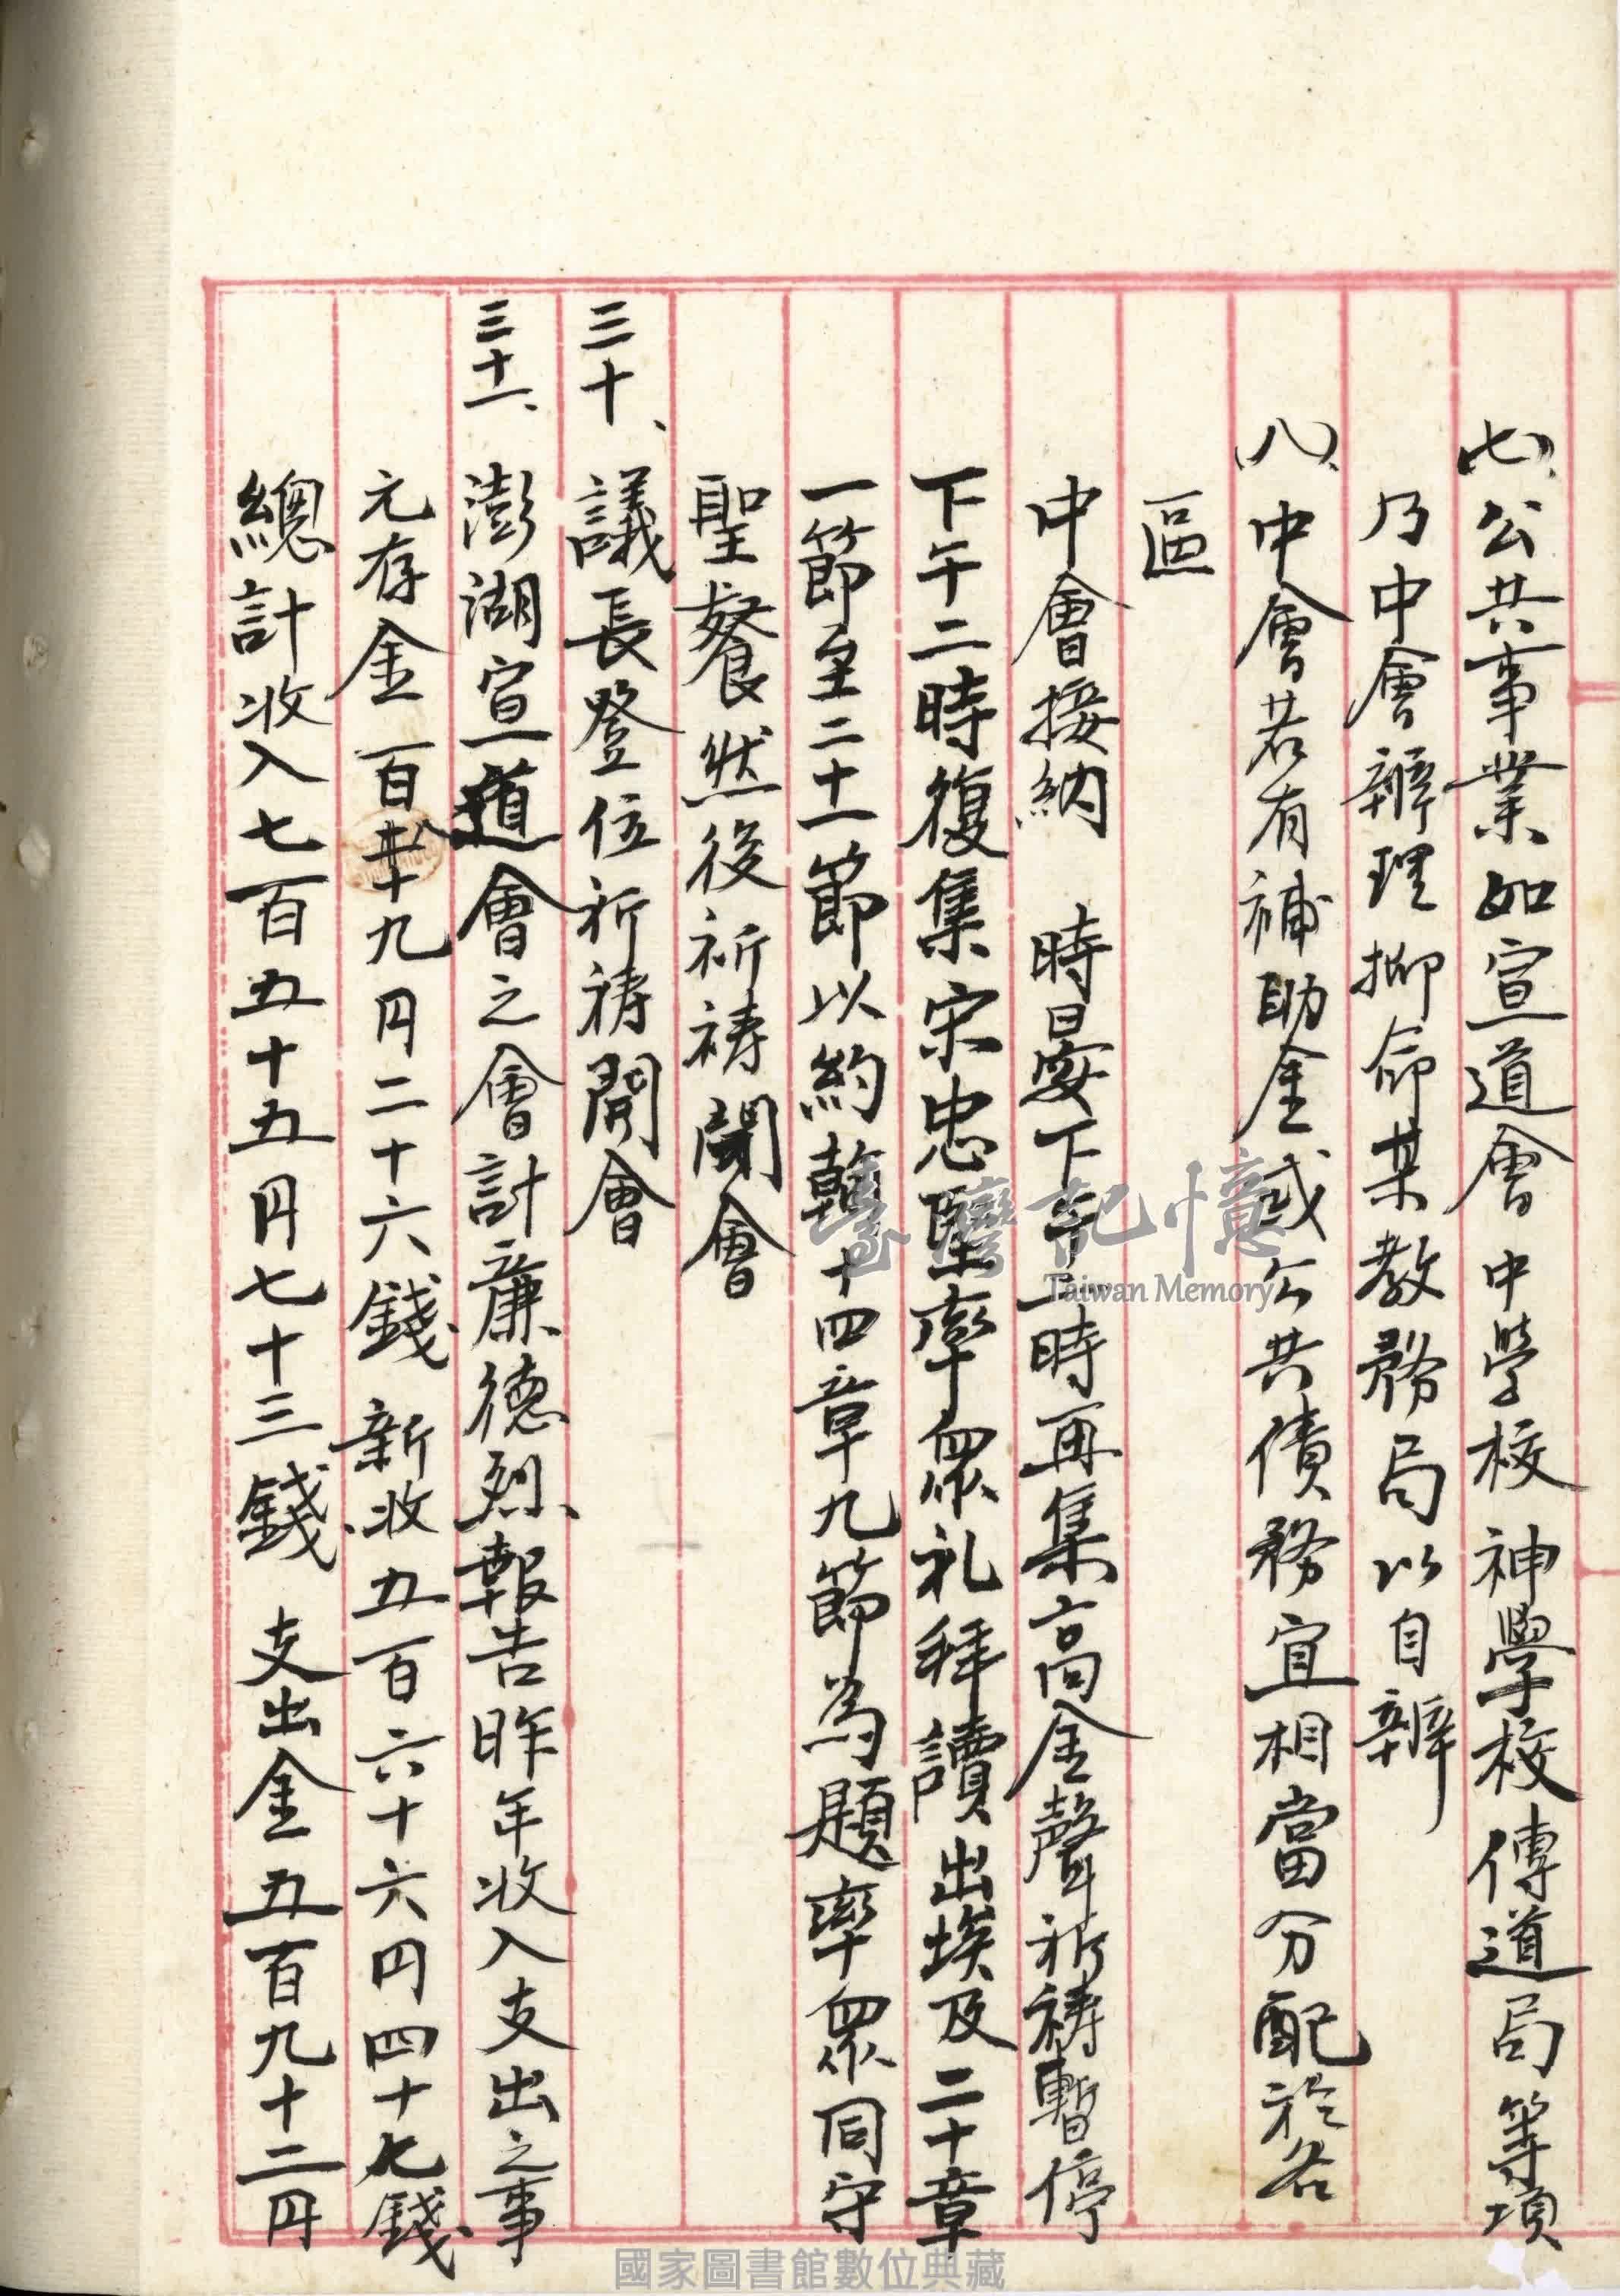 七、公共事業如宣道會中學校神學校傳道局等項
乃中會辦理抑命某教務局以自辦
八、中會若有補助金或公共債務宜相當分配於各
區
中會接納 時晏下午二時再集高金聲祈禱暫停
下午二時復集宋忠堅率眾礼拜讀出埃及二十章
一節至二十一節以約翰十四章九節為題率眾同守
聖餐然後祈禱閉會
三十、議長登位祈祷開會
三十一、澎湖宣道會之會計廉德烈報告昨年收入支出之事
元存金百十九円二十六錢 新收五百六十六円四十七錢
總計收入七百五十五円七十三錢 支出金五百九十二円
臺灣記憶
Taiwan Memory
國家圖書館數位典藏